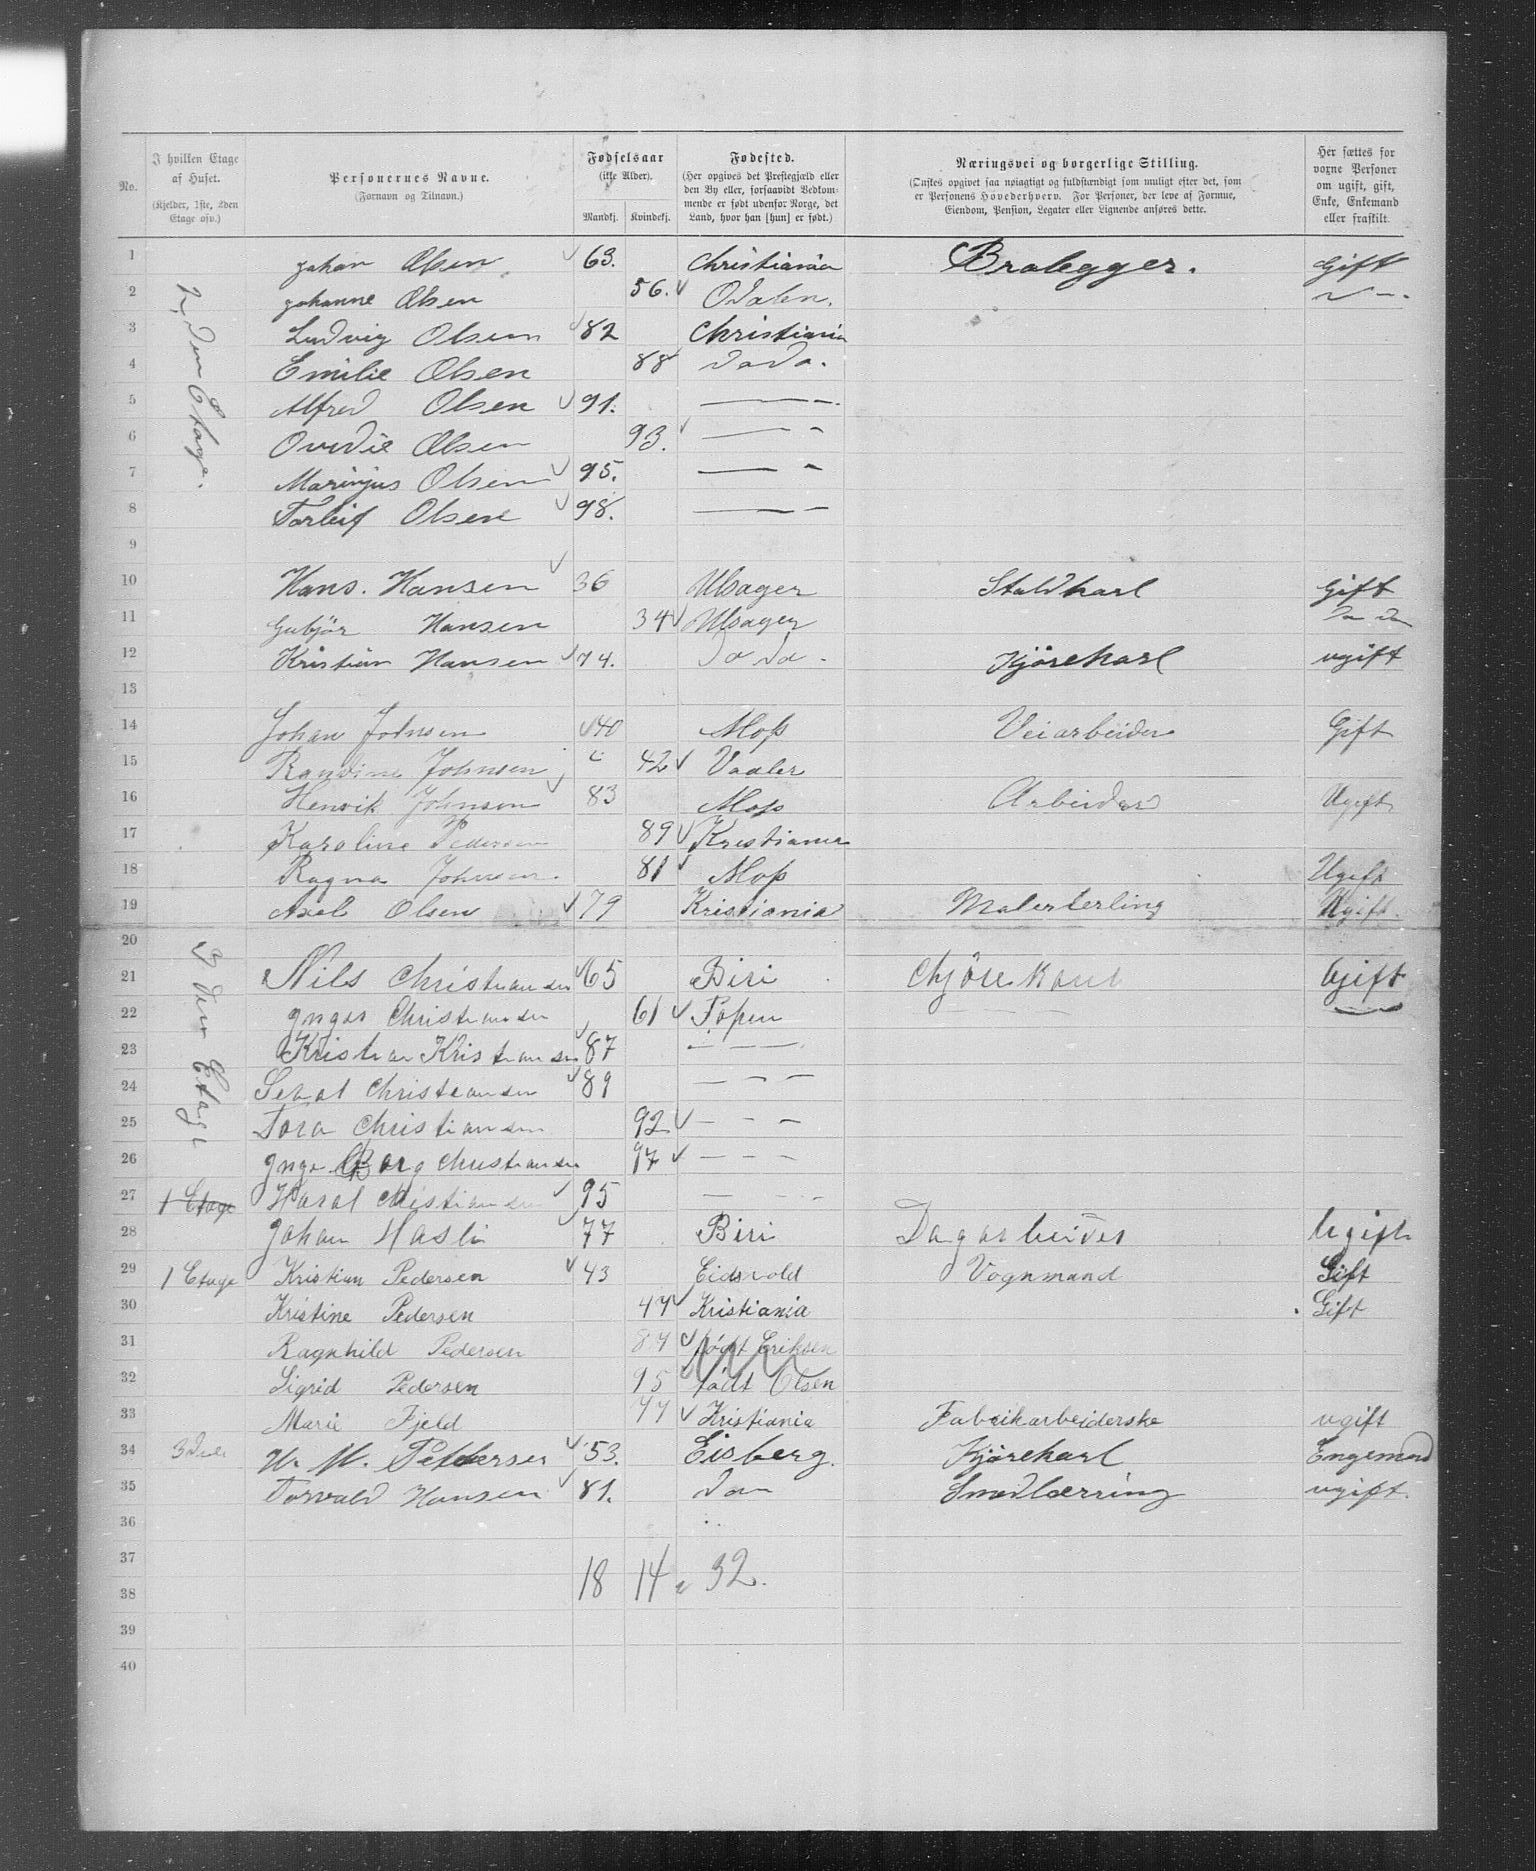 No.
I hvilken Etage af Huset.
(Kjelder, 1ste, 2den Etage osv.)
Personernes Navne.
(Fornavn og Tilnavn.)
Fødselsaar
(ikke Alder).
Mandkj. Kvindekj.
Fødested.
(Her opgives det Prestegjæld eller den By eller, forsaavidt Vedkommende er født udenfor Norge, det Land, hvor han [hun] er født.)
Næringsvei og borgerlige Stilling.
(Ønskes opgivet saa nøiagtigt og fuldstændigt som muligt efter det, som er Personens Hovederhverv. For Personer, der leve af Formue, Eiendom, Pension, Legater eller Lignende anføres dette.
Her sættes for voxne Personer om ugift, gift, Enke, Enkemand eller fraskilt.
2den Etage.
1 Johan Olsen 63. Christiania Brolegger. Gift
2 Johanne Olsen 56. Odalen. — " —
3 Ludvig Olsen 82 Christiania
4 Emilie Olsen 88 dodo.
5 Alfred Olsen 91. —
6 Ovedie Olsen 93. — "
7 Marinjus Olsen 95. — "
8 Torleif Olsen 98. —
9
10 Hans. Hansen 36 Ulsager Staldkarl Gift
11 Gubjør Hansen 34 Ulsager do do
12 Kristian Hansen 74. do do Kjørekarl ugift
13
14 Johan Johnsen 40 Moss Veiarbeider Gift
15 Randine Johnsen 42 Vaaler
16 Henrik Johnsen 83 Moss Arbeider Ugift
17 Karoline Pedersen 89 Kristiania
18 Ragna Johnsen. 81 Moss Ugift
19 Axel Olsen 79 Kristiania Malerlerling Ugift.
20
3den Etage
21 Nils Christiansen 65 Biri Chjørekarl Gift
22 Yngar Christiansen 61 Toten —
23 Kristian Kristiansen 87 — —
24 Senat Christiansen 89 — — —
25 Tora Christiansen 92 — — —
26 Ynge Borg Christiansen 97 — — —
27 1 Etage Haral Christiansen 95 — — —
28 Johan Hasli 77 Biri Dagarbeider Ugift
29 1 Etage Kristian Pedersen 43 Eidsvold Vognmand Gift
30 Kristine Pedersen 47 Kristiania Gift
31 Ragnhild Pedersen 87 født Eriksen
32 Sigrid Pedersen 95 født Olsen
33 Marie Fjeld 77 Kristiania Fabrikarbeiderske ugift
34 3die H. M. Pettersen 53. Eisberg. Kjørekarl Engemand
35 Torvald Hansen 81. do Smedlærring ugift.
36
37
18 14 = 32.
38
39
40